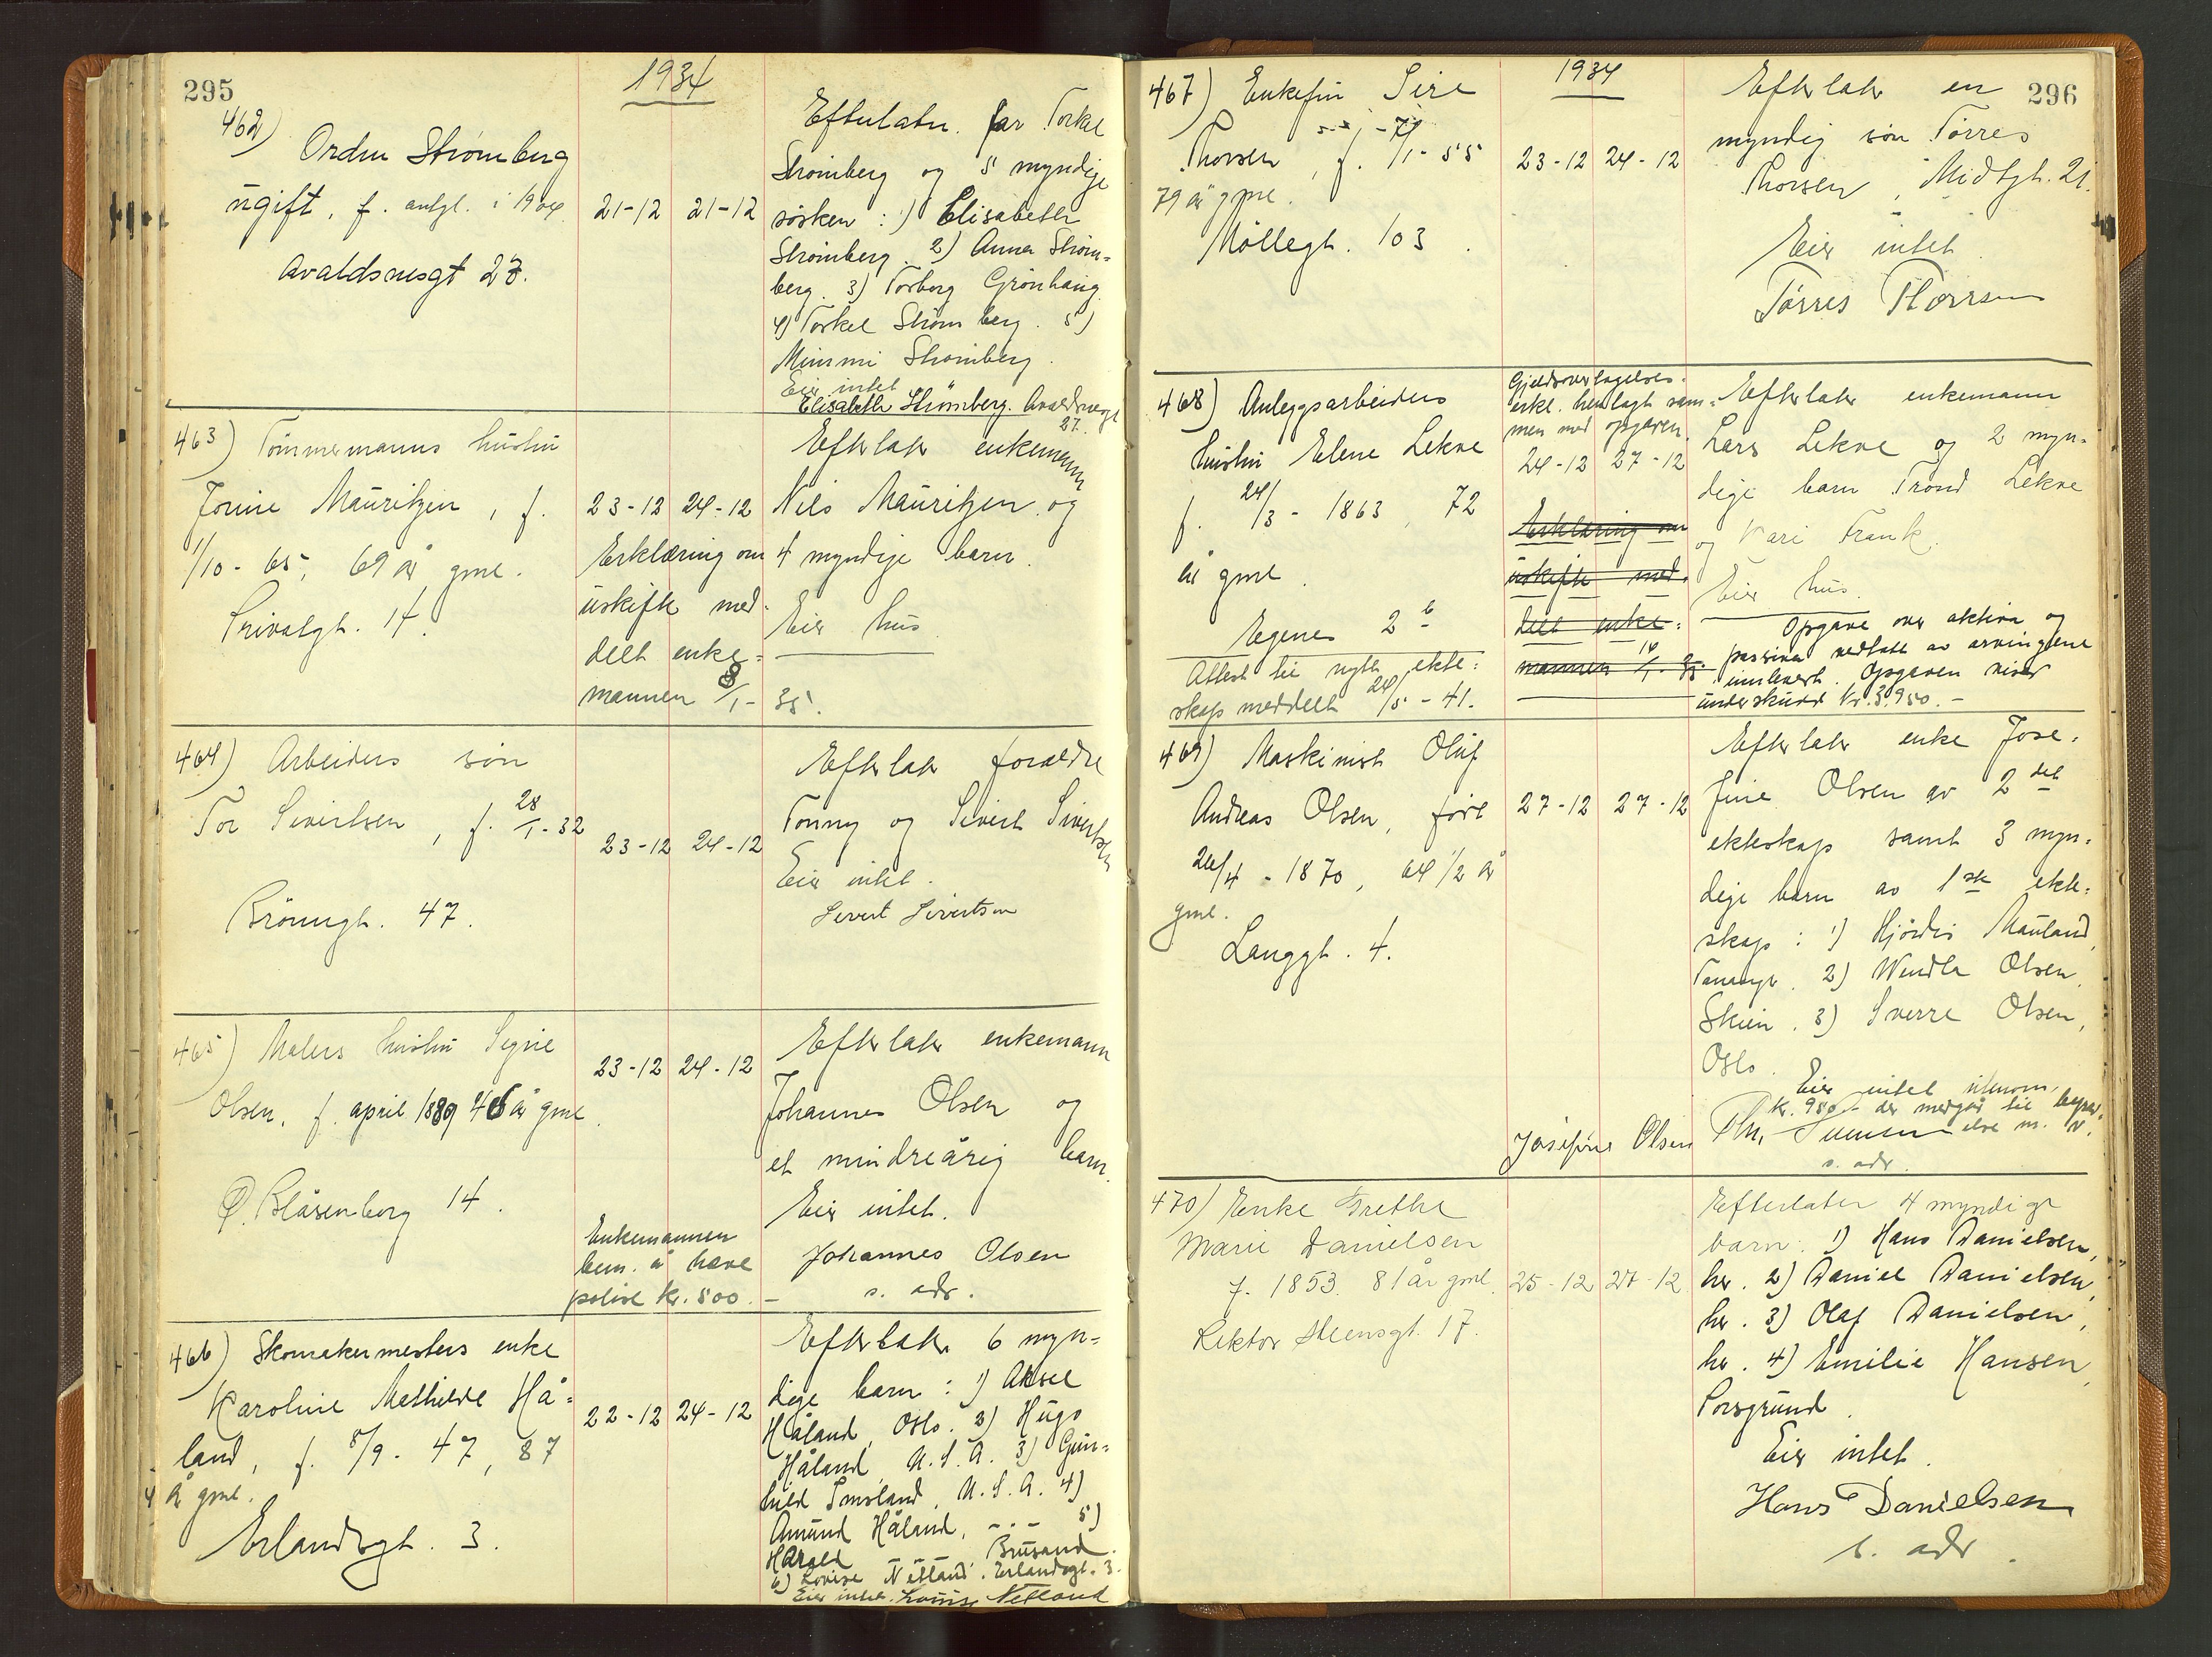 295
1934
462)
Ordin Strömberg
ugift, f. antgl. i 1904
Avaldsnesgt 27.
21-12 21-12
Efterlater far Torkel
Strömberg og 5 myndige
søsken: 1) Elisabeth
Strömberg 2) Anna Ström=
berg. 3) Torborg Grönhaug
4) Torkel Strömberg. 5)
Mimmi Strömberg.
Eier intet
Elisabeth Strömberg. Avaldsnesgt
27.
463) Tömmermanns hustru
Jonine Mauritzen, f.
1/10-65, 69 år gml.
Privatgt. 14.
23-12 24-12
Erklæring om
uskifte med=
delt enke=
mannen 8/1- 35.
Efterlater enkemann
Nils Mauritzen og
4 myndige barn.
Eier hus
464) Arbeiders sön
Tor Sivertsen, f. 28/1-32
Brönngt. 47.
23-12 24-12
Efterlater foreldre
Tonny og Sivert Sivertsen
Eier intet.
Sivert Sivertsen
465) Malers hustru Signe
Olsen, f. april 1889 46 år gml.
Ø. Blåsenborg 14.
23-12 24-12
Enkemannen
bem. å have
polise kr. 500.-
Efterlater enkemann
Johannes Olsen og
et mindreårig barn.
Eier intet.
Johannes Olsen
s. adr.
466) Skomakermesters enke
Karoline Mathilde Hå=
land, f. 8/9-47, 87
år gml.
Erlandsgt. 3.
22-12 24-12
Efterlater 6 myn=
dige barn: 1) Aksel
Håland, Oslo. 2) Hugo
Håland, U.S.A. 3) Gun=
hild Imsland, U.S.A. 4)
Amund Håland, -"- 5)
Harald Brusand.
6) Lovise Netland. Erlandsgt. 3.
Eier intet. Lovise Netland
296
1934
467) Enkefru Sire
Thorsen, f. 7/1-55
79 år gml.
Möllegt. 103.
23-12 24-12
Efterlater en
myndig sön Törres
Thorsen, Midtgt. 21.
Eier intet
Tørres Thorsen
468) Anleggsarbeiders
hustru Elene Lekve
f. 24/3-1863, 72
år gml.
Egenes 2 b
Attest til nytt ekte=
skap meddelt 24/5-41.
Gjeldsovertagelses=
erkl. henlagt sam=
men med opgaven.
24-12 27-12
Erklæring om
uskifte med=
delt enke=
mannen 14/1-35.
Efterlater enkemann
Lars Lekve og 2 myn=
dige barn Trond Lekve
og Kari Frank.
Eier hus.
Opgave over aktiva og
passiva vedtatt av arvingene
innlevert. Opgaven viser
underskudd kr. 3.950.-
469) Maskinist Oluf
Andreas Olsen, född
24/4-1870, 64 1/2 år
gml.
Langgt. 4.
27-12 27-12
Efterlater enke Jose=
fine Olsen av 2 det
ekteskap samt 3 myn=
dige barn av 1ste ekte=
skap: 1) Hjördis Mauland,
Tanangr. 2) Wendla Olsen,
Skien. 3) Sverre Olsen,
Oslo.
Eier intet utenom
kr. 980- der medgår til begrav=
else m. v.
Josefine Olsen
s. adr.
470) Enke Grethe
Marie Danielsen
f. 1853. 81 år gml.
Rektor Steensgt. 17.
25-12 27-12
Efterlater 4 myndige
barn: 1) Hans Danielsen,
her. 2) Daniel Danielsen,
her. 3) Olaf Danielsen,
her. 4) Emilie Hansen,
Porsgrund.
Eier intet.
Hans Danielsen
s. adr.